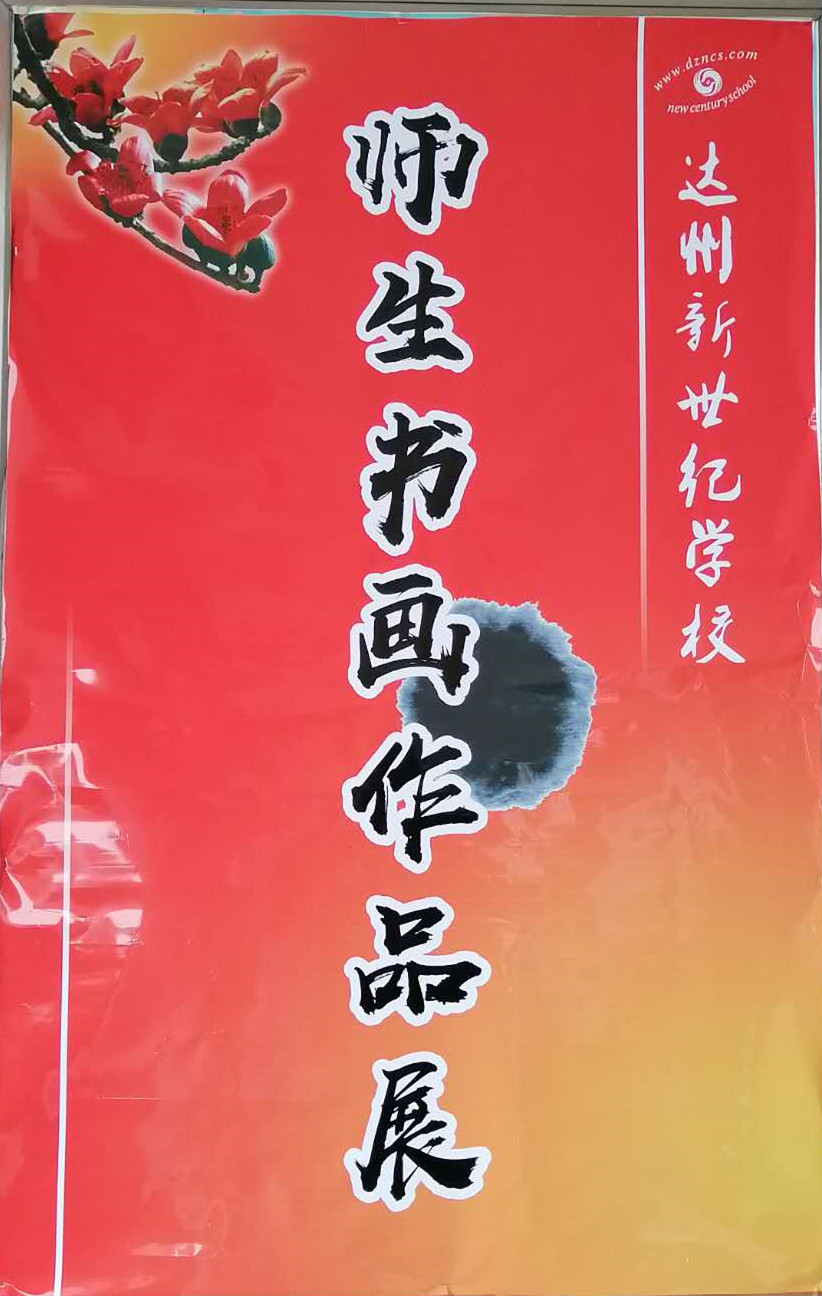 师生书画作品展
www.dzncs.com
new century school
达州新世纪学校